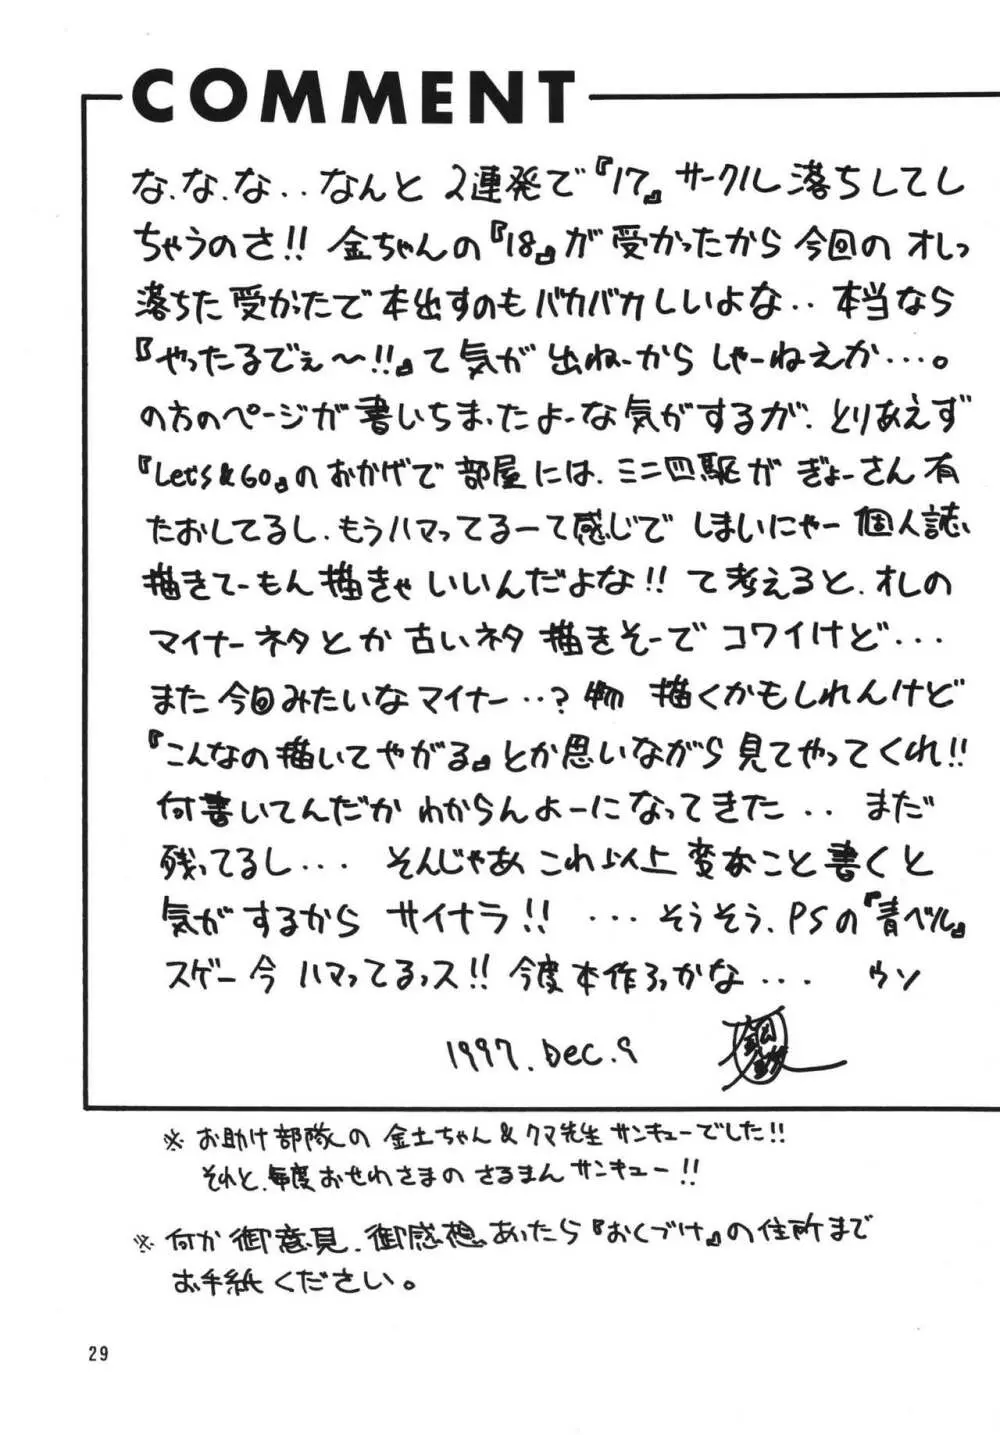 COMMENT
な、な、な・・なんと 2連発で『17』サークル落ちしてし
ちゃうのさ!! 金ちゃんの『18』が受かったから今回のオレっ
落ちた受かたで本出すのもバカバカしいよな・・本当なら
『やったるでぇ〜!!』て気が出ねーからしゃーねえか・・・。
の方のページが書いちまったよーな気がするが、とりあえず
『Let's&Go』のおかげで部屋には、ミニ四駆がぎょーさん有
たおしてるし、もうハマってるーて感じでしまいにゃー個人誌、
描きてーもん描きゃいいんだよな!! て考えると、オレの
マイナーネタとか古いネタ描きそーでコワイけど・・・
また今回みたいなマイナー・・?物 描くかもしれんけど
『こんなの描いてやがる』とか思いながら見てやってくれ!!
何書いてんだかわからんよーになってきた・・ まだ
残ってるし・・・ そんじゃあこれ以上変なこと書くと
気がするからサイナラ!! ・・・そうそう、PSの『青ベル』
スゲー今ハマってるっス!! 今度本作ろっかな・・・ ウソ
1997. Dec. 9
※お助け部隊の金土ちゃん&クマ先生サンキューでした!!
それと、毎度おせわさまのさるまんサンキュー!!
※何か御意見、御感想あったら『おくづけ』の住所まで
お手紙ください。
29